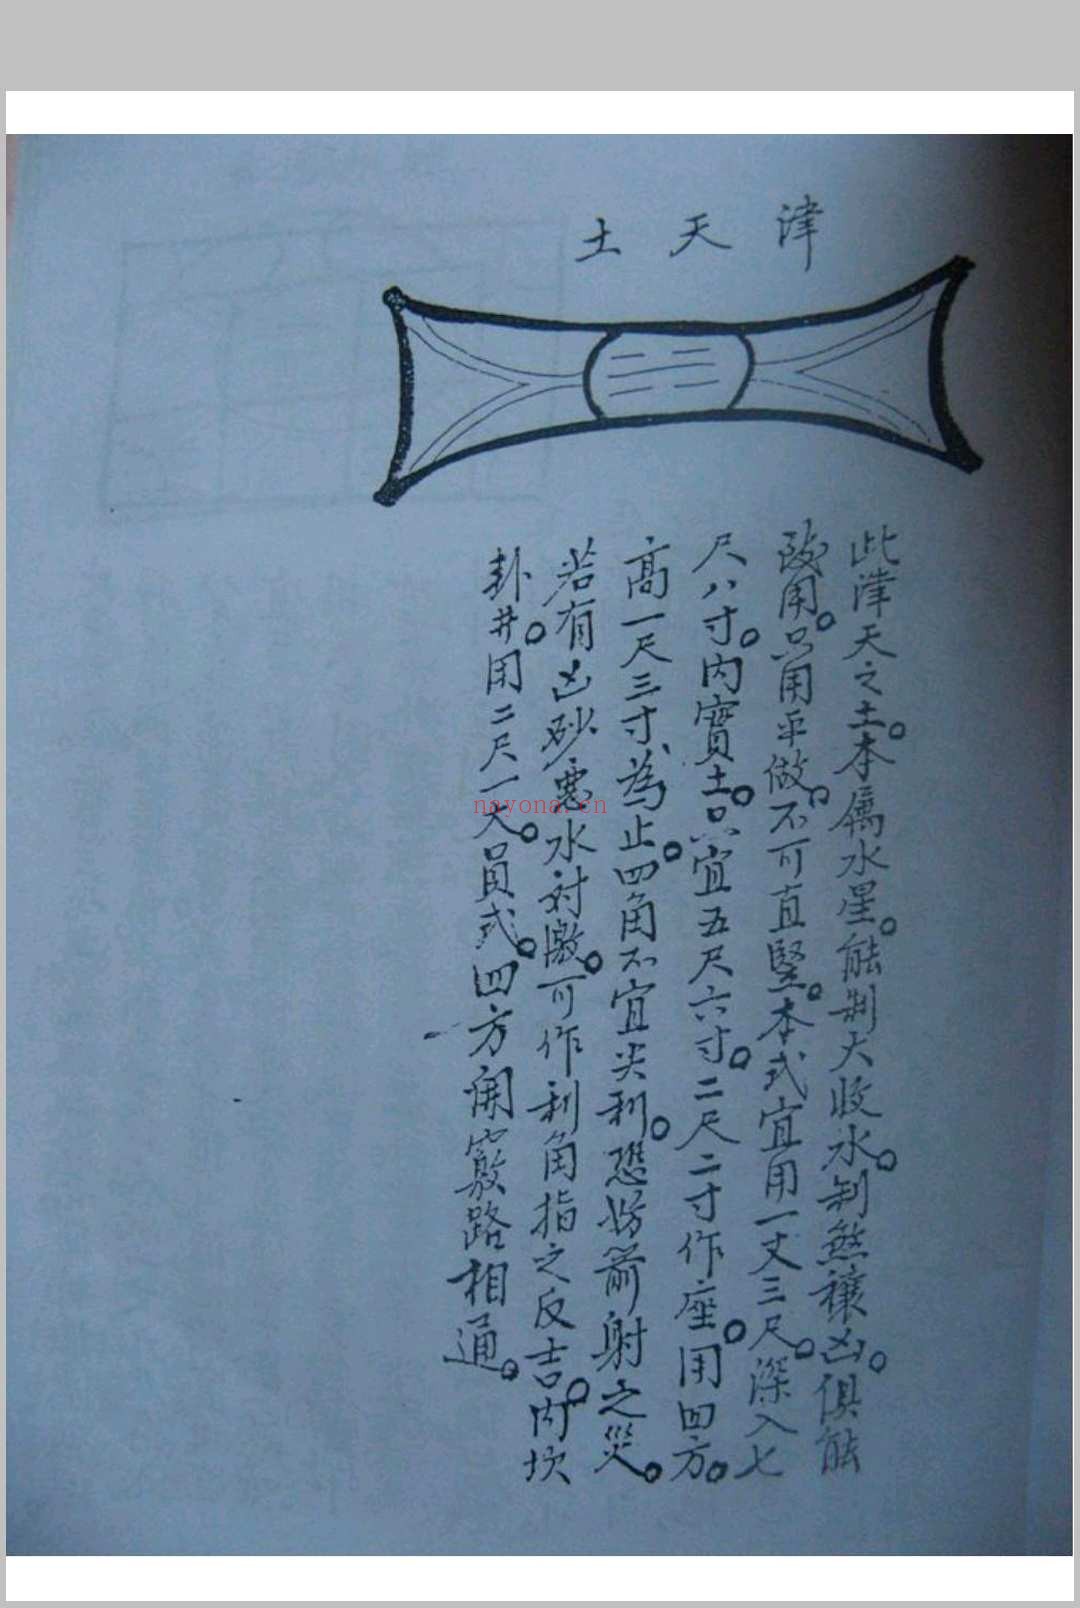 津天土
此津天之土。本属水星。能制大收水。制煞穰凶。俱能
用。只用平做。不可直竪。本式宜用一丈三尺。深入七
尺八寸。内實土。只宜五尺六寸。二尺二寸作座。用四方。
高一尺三寸、為止。四角不宜尖利。恐妨箭射之災。
若有凶砂惡水対激。可作利角指之反吉。内坎
卦井。用二尺一大。員式。四方開竅路相通。
nayona.cn